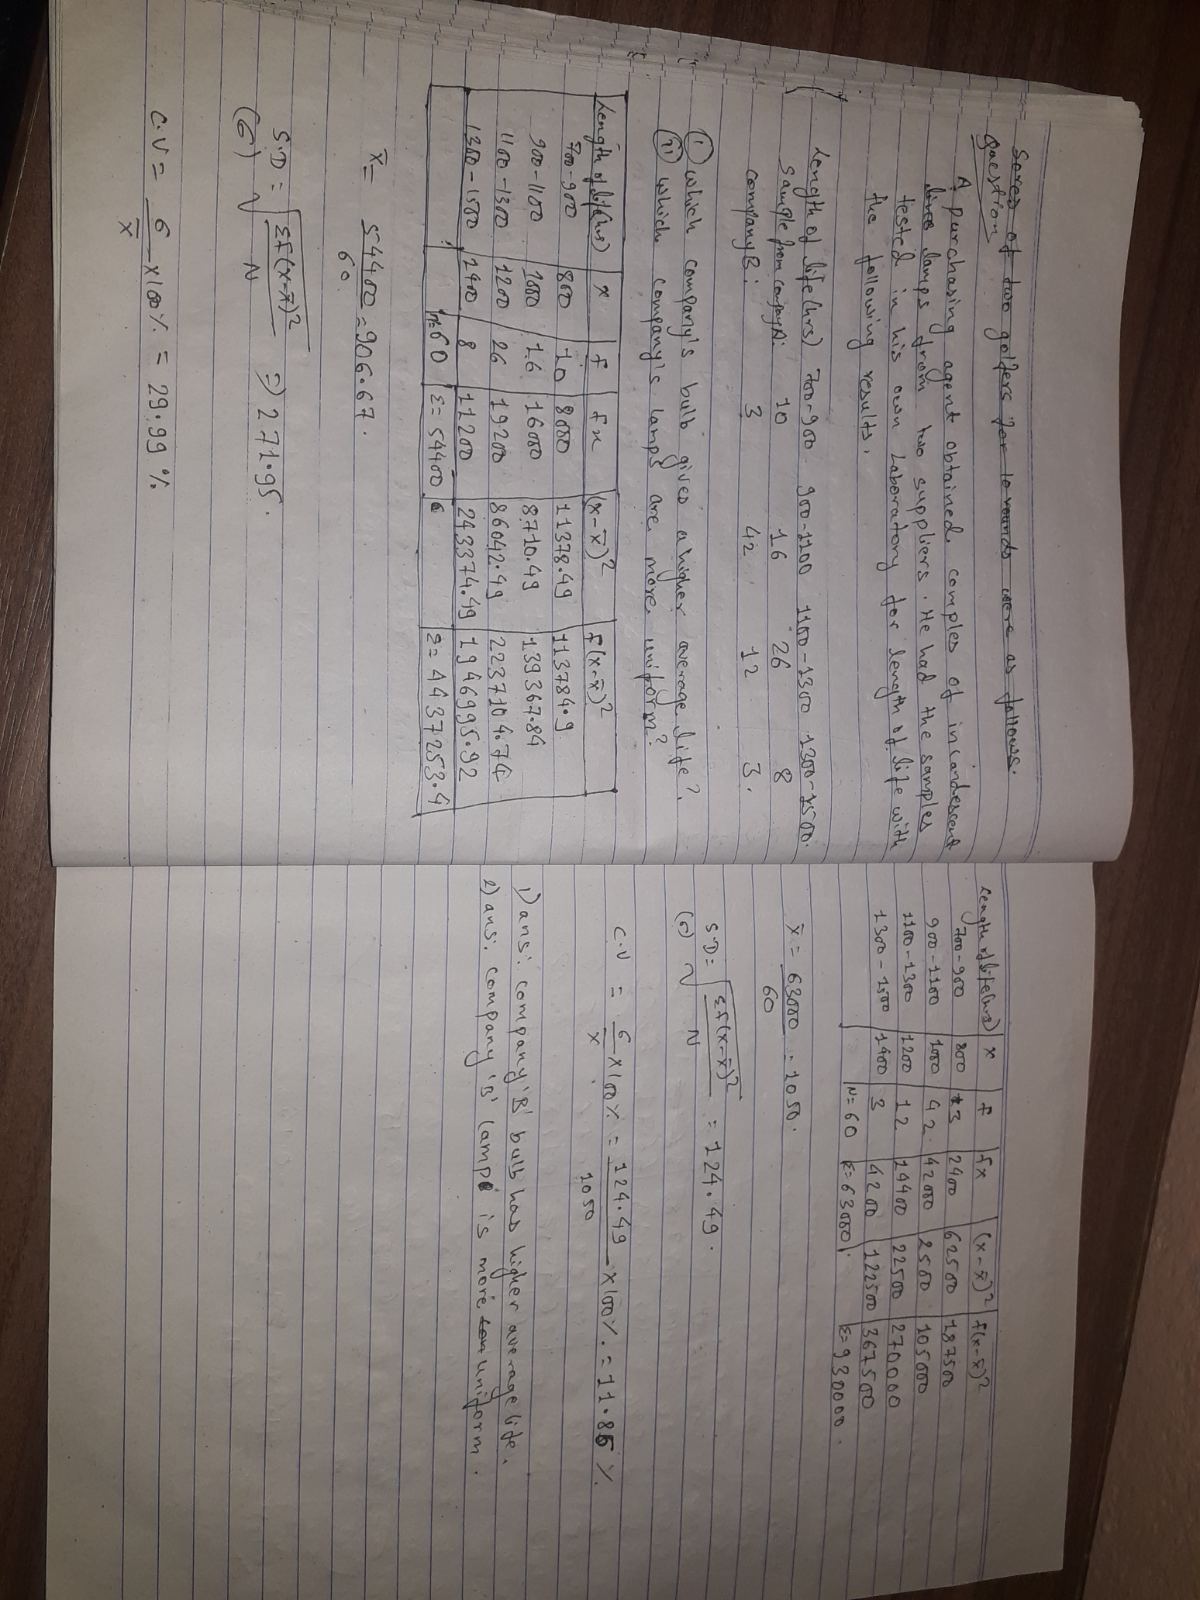 Sores of two golfers for 10 rounds were as follows.
Question
A purchasing agent obtained comples of incandescent
lines lamps from two suppliers. He had the samples
tested in his own Laboratory for length of life with
the following results.
Length of life (hrs) 700-900 900-1100 1100-1300 1300-1500.
Sample from company A: 10 16 26 8
company B: 3 42 12 3.
(i) which company's bulb gives a higher average life?
(ii) which company's lamps are more uniform?
Length of life (hrs) x f fx (x-x̄)² f(x-x̄)²
700-900 800 10 8000 11378.49 113784.9
900-1100 1000 16 16000 8710.49 139367.84
1100-1300 1200 26 19200 86042.49 2237104.74
1300-1500 1400 8 11200 243374.49 1946995.92
N=60 Σ=54400 Σ=4437253.4
x̄= 54400 = 906.67.
60
S.D = √Σf(x-x̄)² ⇒ 271.95.
(σ) N
C.V = σ ×100% = 29.99 %
x̄
Length of life (hrs) x f fx (x-x̄)² f(x-x̄)²
700-900 800 3 2400 62500 187500
900-1100 1000 42 42000 2500 105000
1100-1300 1200 12 14400 22500 270000
1300-1500 1400 3 4200 122500 367500
N=60 Σ=63000 Σ=930000.
x̄ = 63000 = 1050.
60
S.D = √Σf(x-x̄)² = 124.49.
(σ) N
C.V = σ ×100% = 124.49 ×100% = 11.85 %
x 1050
1) ans: company 'B' bulb has higher average life.
2) ans: company 'B' lamp is more uniform.